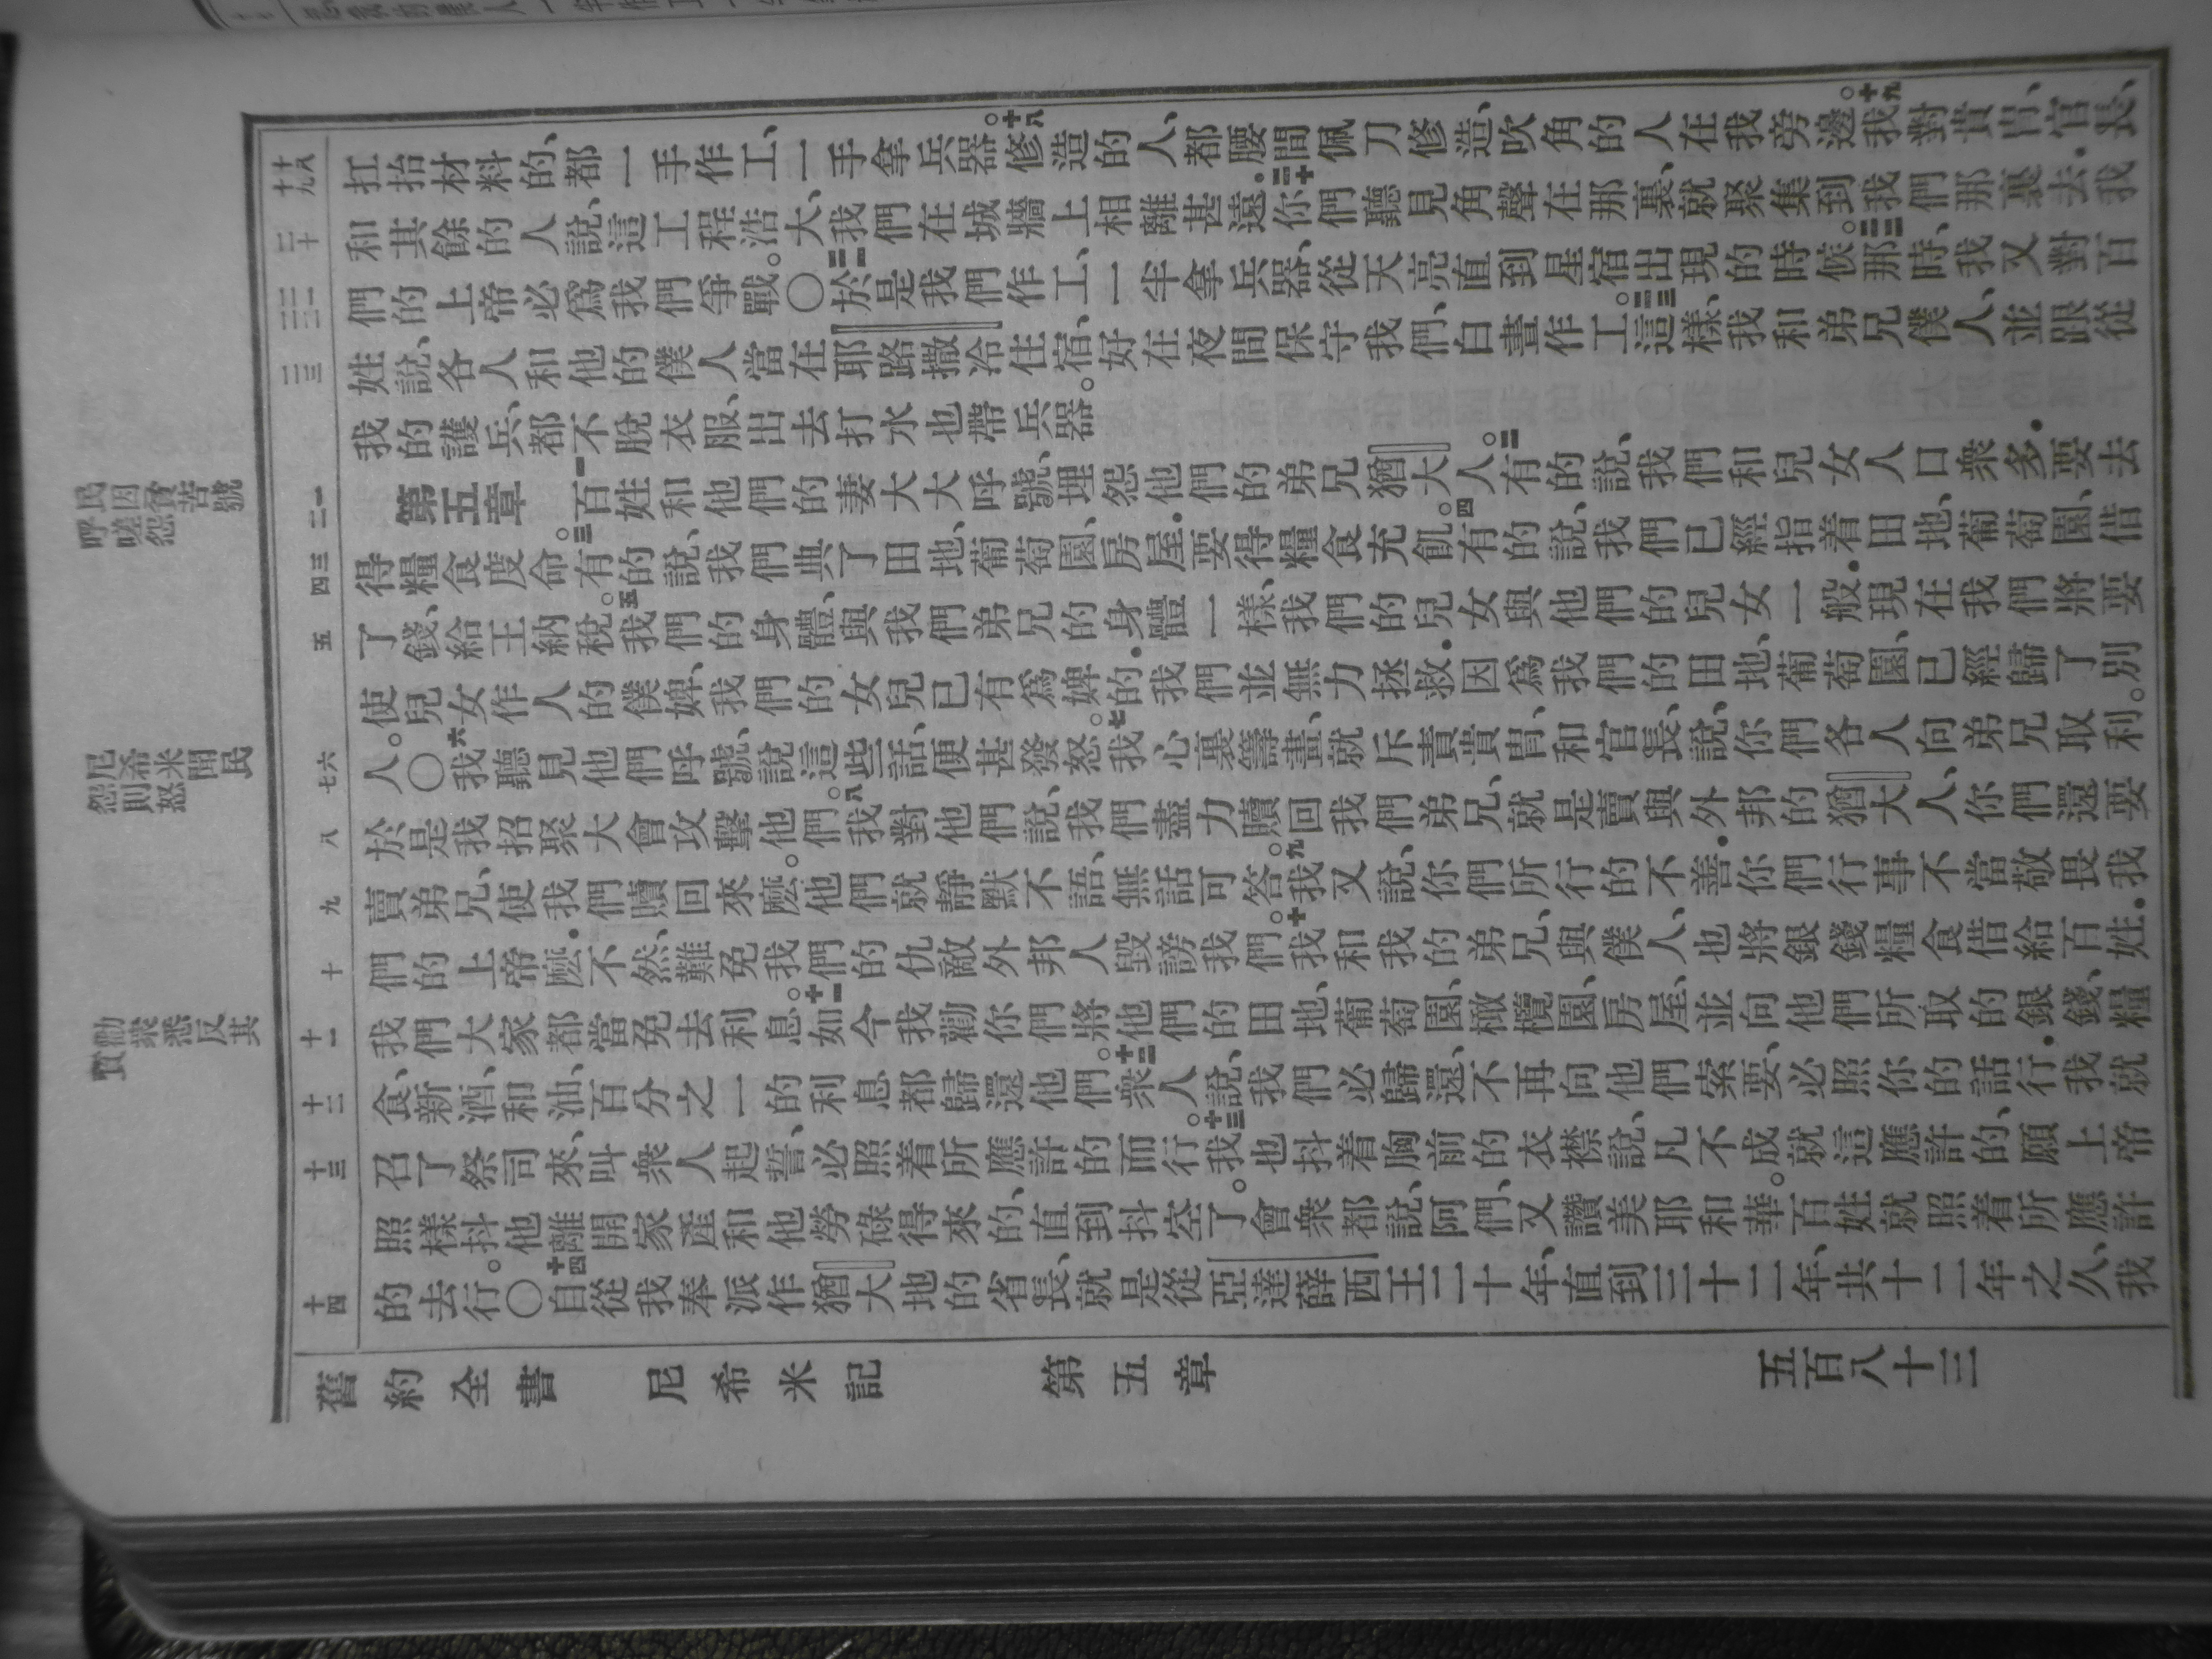 十八 十九
扛抬材料的、都一手作工、一手拿兵器。十八修造的人、都腰間佩刀修造、吹角的人在我旁邊。十九我對貴冑、官長、
二十
和其餘的人說、這工程浩大、我們在城牆上相離甚遠.二十你們聽見角聲在那裏、就聚集到我們那裏去.我
二一 二二
們的上帝必爲我們爭戰。〇二一於是我們作工、一半拿兵器、從天亮直到星宿出現的時候。二二那時、我又對百
二三
姓說、各人和他的僕人當在耶路撒冷住宿、好在夜間保守我們、白晝作工。二三這樣、我和弟兄僕人、並跟從
我的護兵、都不脫衣服、出去打水也帶兵器。
一 二
第五章 一百姓和他們的妻大大呼號、埋怨他們的弟兄猶大人。二有的說、我們和兒女人口衆多.要去
三 四
得糧食度命。三有的說、我們典了田地、葡萄園、房屋.要得糧食充飢。四有的說、我們已經指着田地、葡萄園、借
五
了錢、給王納稅。五我們的身體、與我們弟兄的身體一樣、我們的兒女與他們的兒女一般.現在我們將要
使兒女作人的僕婢、我們的女兒已有爲婢的.我們並無力拯救.因爲我們的田地、葡萄園、已經歸了別
六 七
人。〇六我聽見他們呼號、說這些話、便甚發怒。七我心裏籌畫、就斥責貴冑、和官長、說、你們各人向弟兄取利。
八
於是我招聚大會攻擊他們。八我對他們說、我們盡力贖回我們弟兄、就是賣與外邦的猶大人、你們還要
九
賣弟兄、使我們贖回來麼。他們就靜默不語、無話可答。九我又說、你們所行的不善.你們行事不當敬畏我
十
們的上帝麼.不然、難免我們的仇敵外邦人毀謗我們。十我和我的弟兄、與僕人、也將銀錢糧食借給百姓.
十一
我們大家都當免去利息。十一如今我勸你們將他們的田地、葡萄園、橄欖園、房屋、並向他們所取的銀錢、糧
十二
食、新酒、和油、百分之一的利息都歸還他們。十二衆人說、我們必歸還、不再向他們索要、必照你的話行.我就
十三
召了祭司來、叫衆人起誓、必照着所應許的而行。十三我也抖着胸前的衣襟說、凡不成就這應許的、願上帝
照樣抖他離開家產和他勞碌得來的、直到抖空了。會衆都說、阿們、又讚美耶和華。百姓就照着所應許
十四
的去行。〇十四自從我奉派作猶大地的省長、就是從亞達薛西王二十年、直到三十二年、共十二年之久、我
民因貧苦號
呼嗟怨
尼希米聞民
怨則怒
勸衆悉反其
舊約全書 尼希米記 第五章 五百八十三